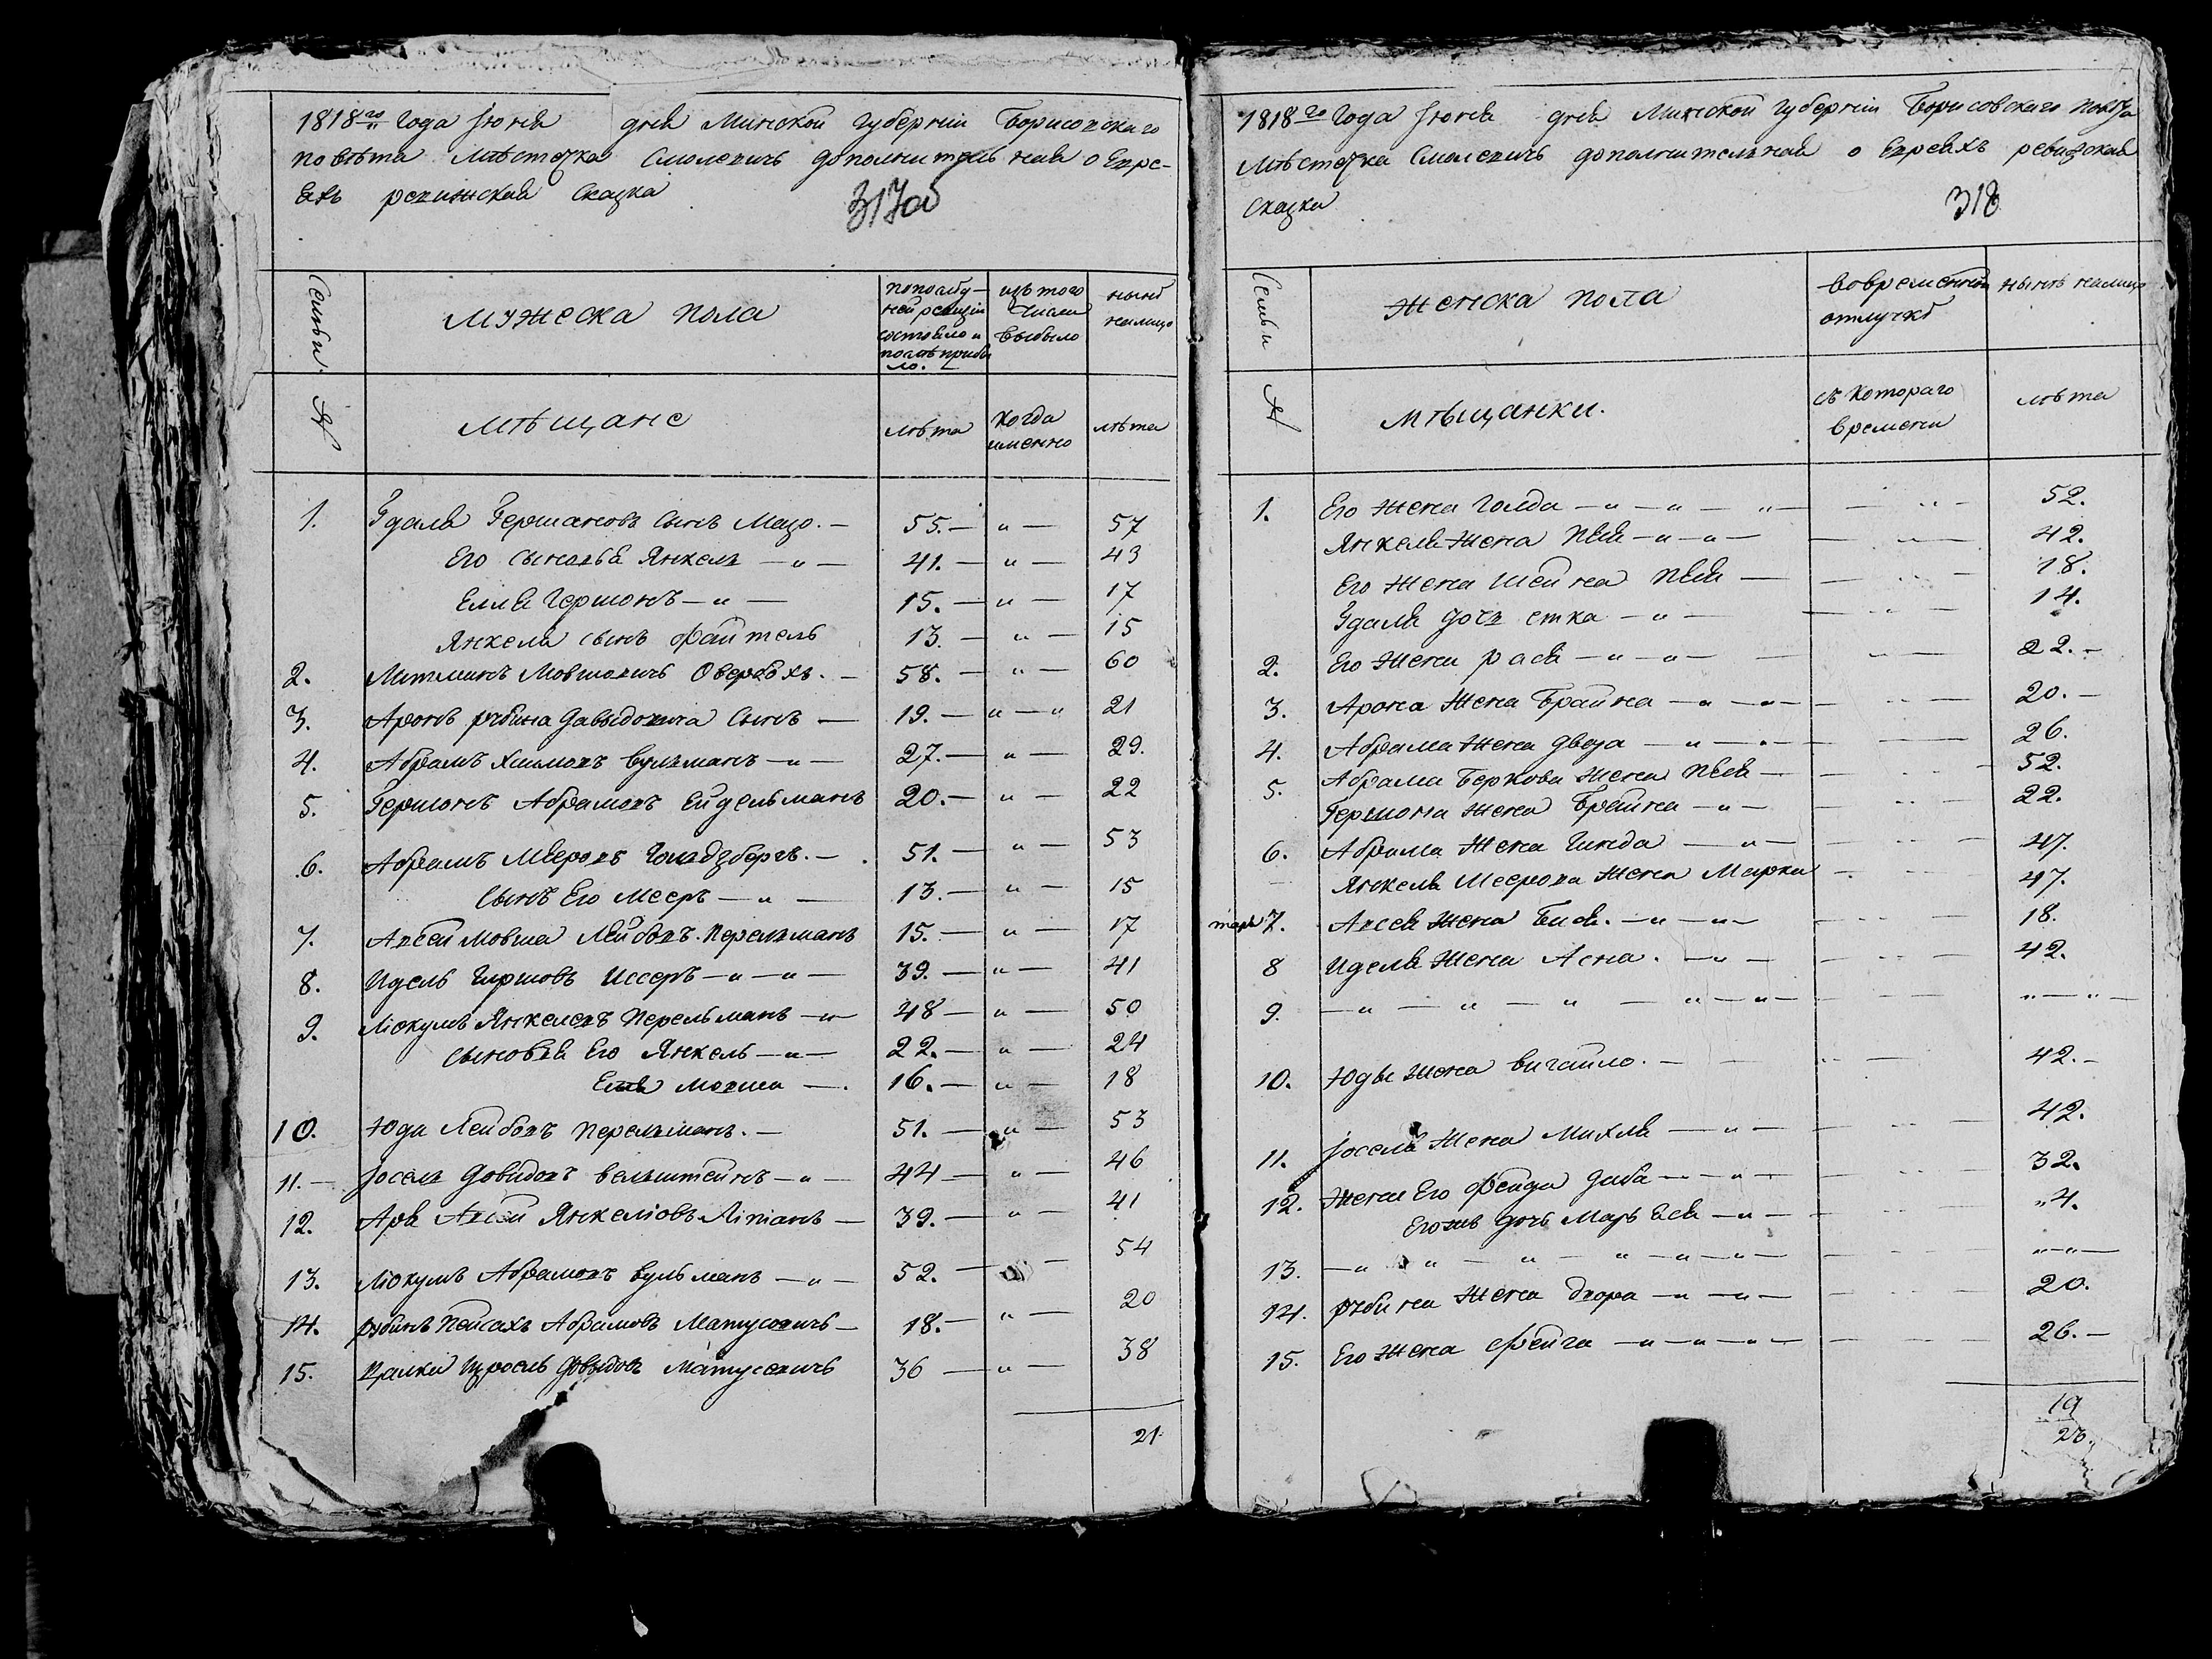 1818го Года Июня дня Минской Губернии Борисовскаго
повѣта Мѣстечка Смолевичъ дополнительная о Евре-
яхъ ревижская Сказка
317об
Семьи.
Мужеска пола
по последу-
ней ревизіи
состояло и
послѣ прибы
ло.
изъ того
Числа
выбыло
нынѣ
налицо
№
мѣщане
лѣта
когда
именно
лѣта
1. Гдаля Гершановъ Сынъ Мазо. — 55. — „ — 57
Его сыновья Янкель — „ — 41. — „ — 43
Еллія Гершонъ — „ — 15. — „ — 17
Янкеля сынъ Файтель 13. — „ — 15
2. Мовшовичъ 58. — „ — 60
3. Аронъ рубина Давыдовича Сынъ — 19. — „ — „ 21
4. Абрамъ Хаимовъ Вульманъ — „ — 27. — „ — 29.
5. Гершонъ Абрамовъ Ейдельманъ 20. — „ — 22
6. Абрамъ Меровъ Гольдзбергъ. — 51. — „ — 53
Сынъ Его Мееръ — „ — 13. — „ — 15
7. Мовша Лейбовъ. Перельманъ 15. — „ — 17
8. Идель Гиршовъ Иссеръ — „ — „ — 39. — „ — 41
9. Янкелевъ Перельманъ — „ 48 — „ — 50
сыновья Его Янкель — „ — 22. — „ — 24
Мовша — . 16. — „ — 18
10. Юда Лейбовъ Перельманъ. — 51. — „ — 53
11. — Іосель Довидовъ Вельштейнъ — „ — 44 — „ — 46
12. Янкеліовъ — 39. — „ — 41
13. Абрамовъ Вульманъ — „ — 52. — 54
14. рубинъ Пейсахъ Абрамовъ Матусовичъ — 18. — „ — 20
15. Израель Довыдовъ Матусевичъ 36 — „ — 38
21
1818го Года Июня дня Минской Губерніи Борисовскаго повѣта
Мѣстечка Смолевичъ дополнительная о Евреяхъ ревизская
Сказка
318
Семьи
Женска пола
вовременной
отлучкѣ
нынѣ налицо
№
мѣщанки.
съ котораго
времени
лѣта
1. Его жена Голда — „ — „ — „ — 52.
Янкеля жена Пея — „ — „ — 42.
Его жена Шейна Пея — 18.
Гдаля дочь етка — „ — 14.
2. Его жена рася — „ — „ — 22. —
3. Арона жена Брайна — „ — „ — 20. —
4. Абрама жена Двоза — „ — „ — 26.
5. Абрама Беркова жена Пея — 52.
Гершона жена Брайна — „ — 22.
6. Абрама жена Гинда — „ — 47.
Янкеля Меерова жена Марка 47.
7. жена Бися. — „ — „ — 18.
8 Иделя жена Асна. — „ — 42.
9. — „ — „ — „ — „ — „ — „ — „ —
10. Юды жена вигайло. — 42. —
11. Іоселя жена Михля — „ — 42.
12. жена Его Фейда Диба — „ — 32.
Егожъ дочь Марьяся — „ — „4.
13. — „ — „ — „ — „ — „ — „ — „ — „ —
14. рубина жена Двора — „ — „ — 20.
15. Его жена Фейга — „ — „ — „ — 26. —
19